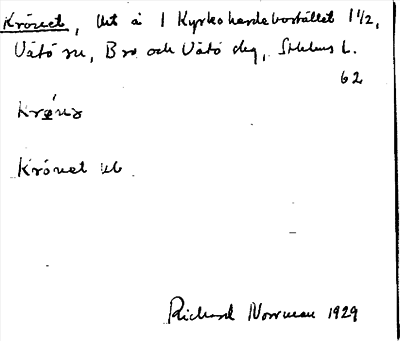 Krónet, lht å 1 Kyrkoherdebostället 1 1/2,
Vätö sn, Bro och Vätö skg, Sthlms l.
62
Krónet ub
Richard Norrman 1929